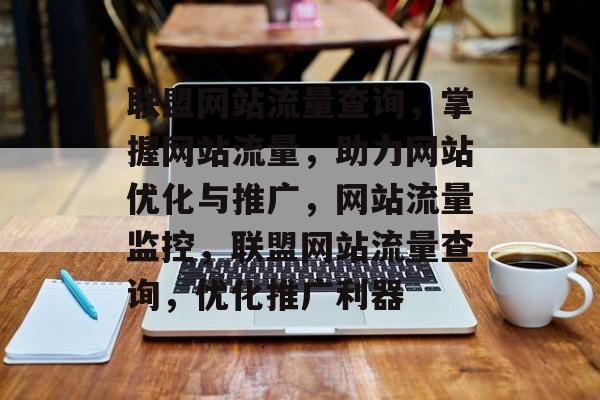 联盟网站流量查询，掌
握网站流量，助力网站
优化与推广，网站流量
监控，联盟网站流量查
询，优化推广利器